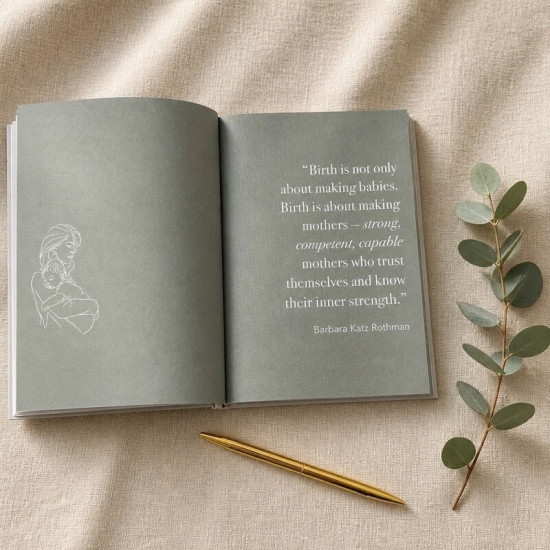 “Birth is not only
about making babies.
Birth is about making
mothers – strong,
competent, capable
mothers who trust
themselves and know
their inner strength.”
Barbara Katz Rothman